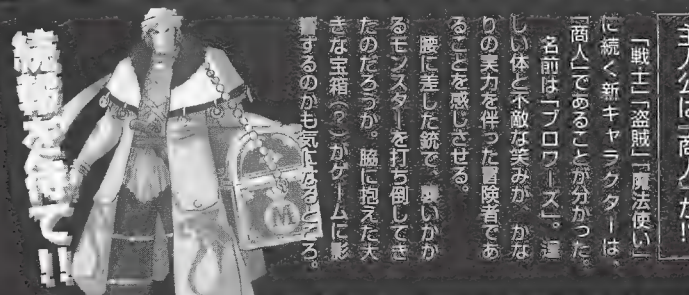 主人公は「商人」か!?
「戦士」「盗賊」「魔法使い」
に続く新キャラクターは
「商人」であることが分かった。
名前は「ブロワーズ」。逞
しい体と不敵な笑みが、かな
りの実力を伴った冒険者であ
ることを感じさせる。
腰に差した銃で、襲いかか
るモンスターを打ち倒してき
たのだろうか。脇に抱えた大
きな宝箱(?)がゲームに影
響するのかも気になるところ。
続報を待て!!
M